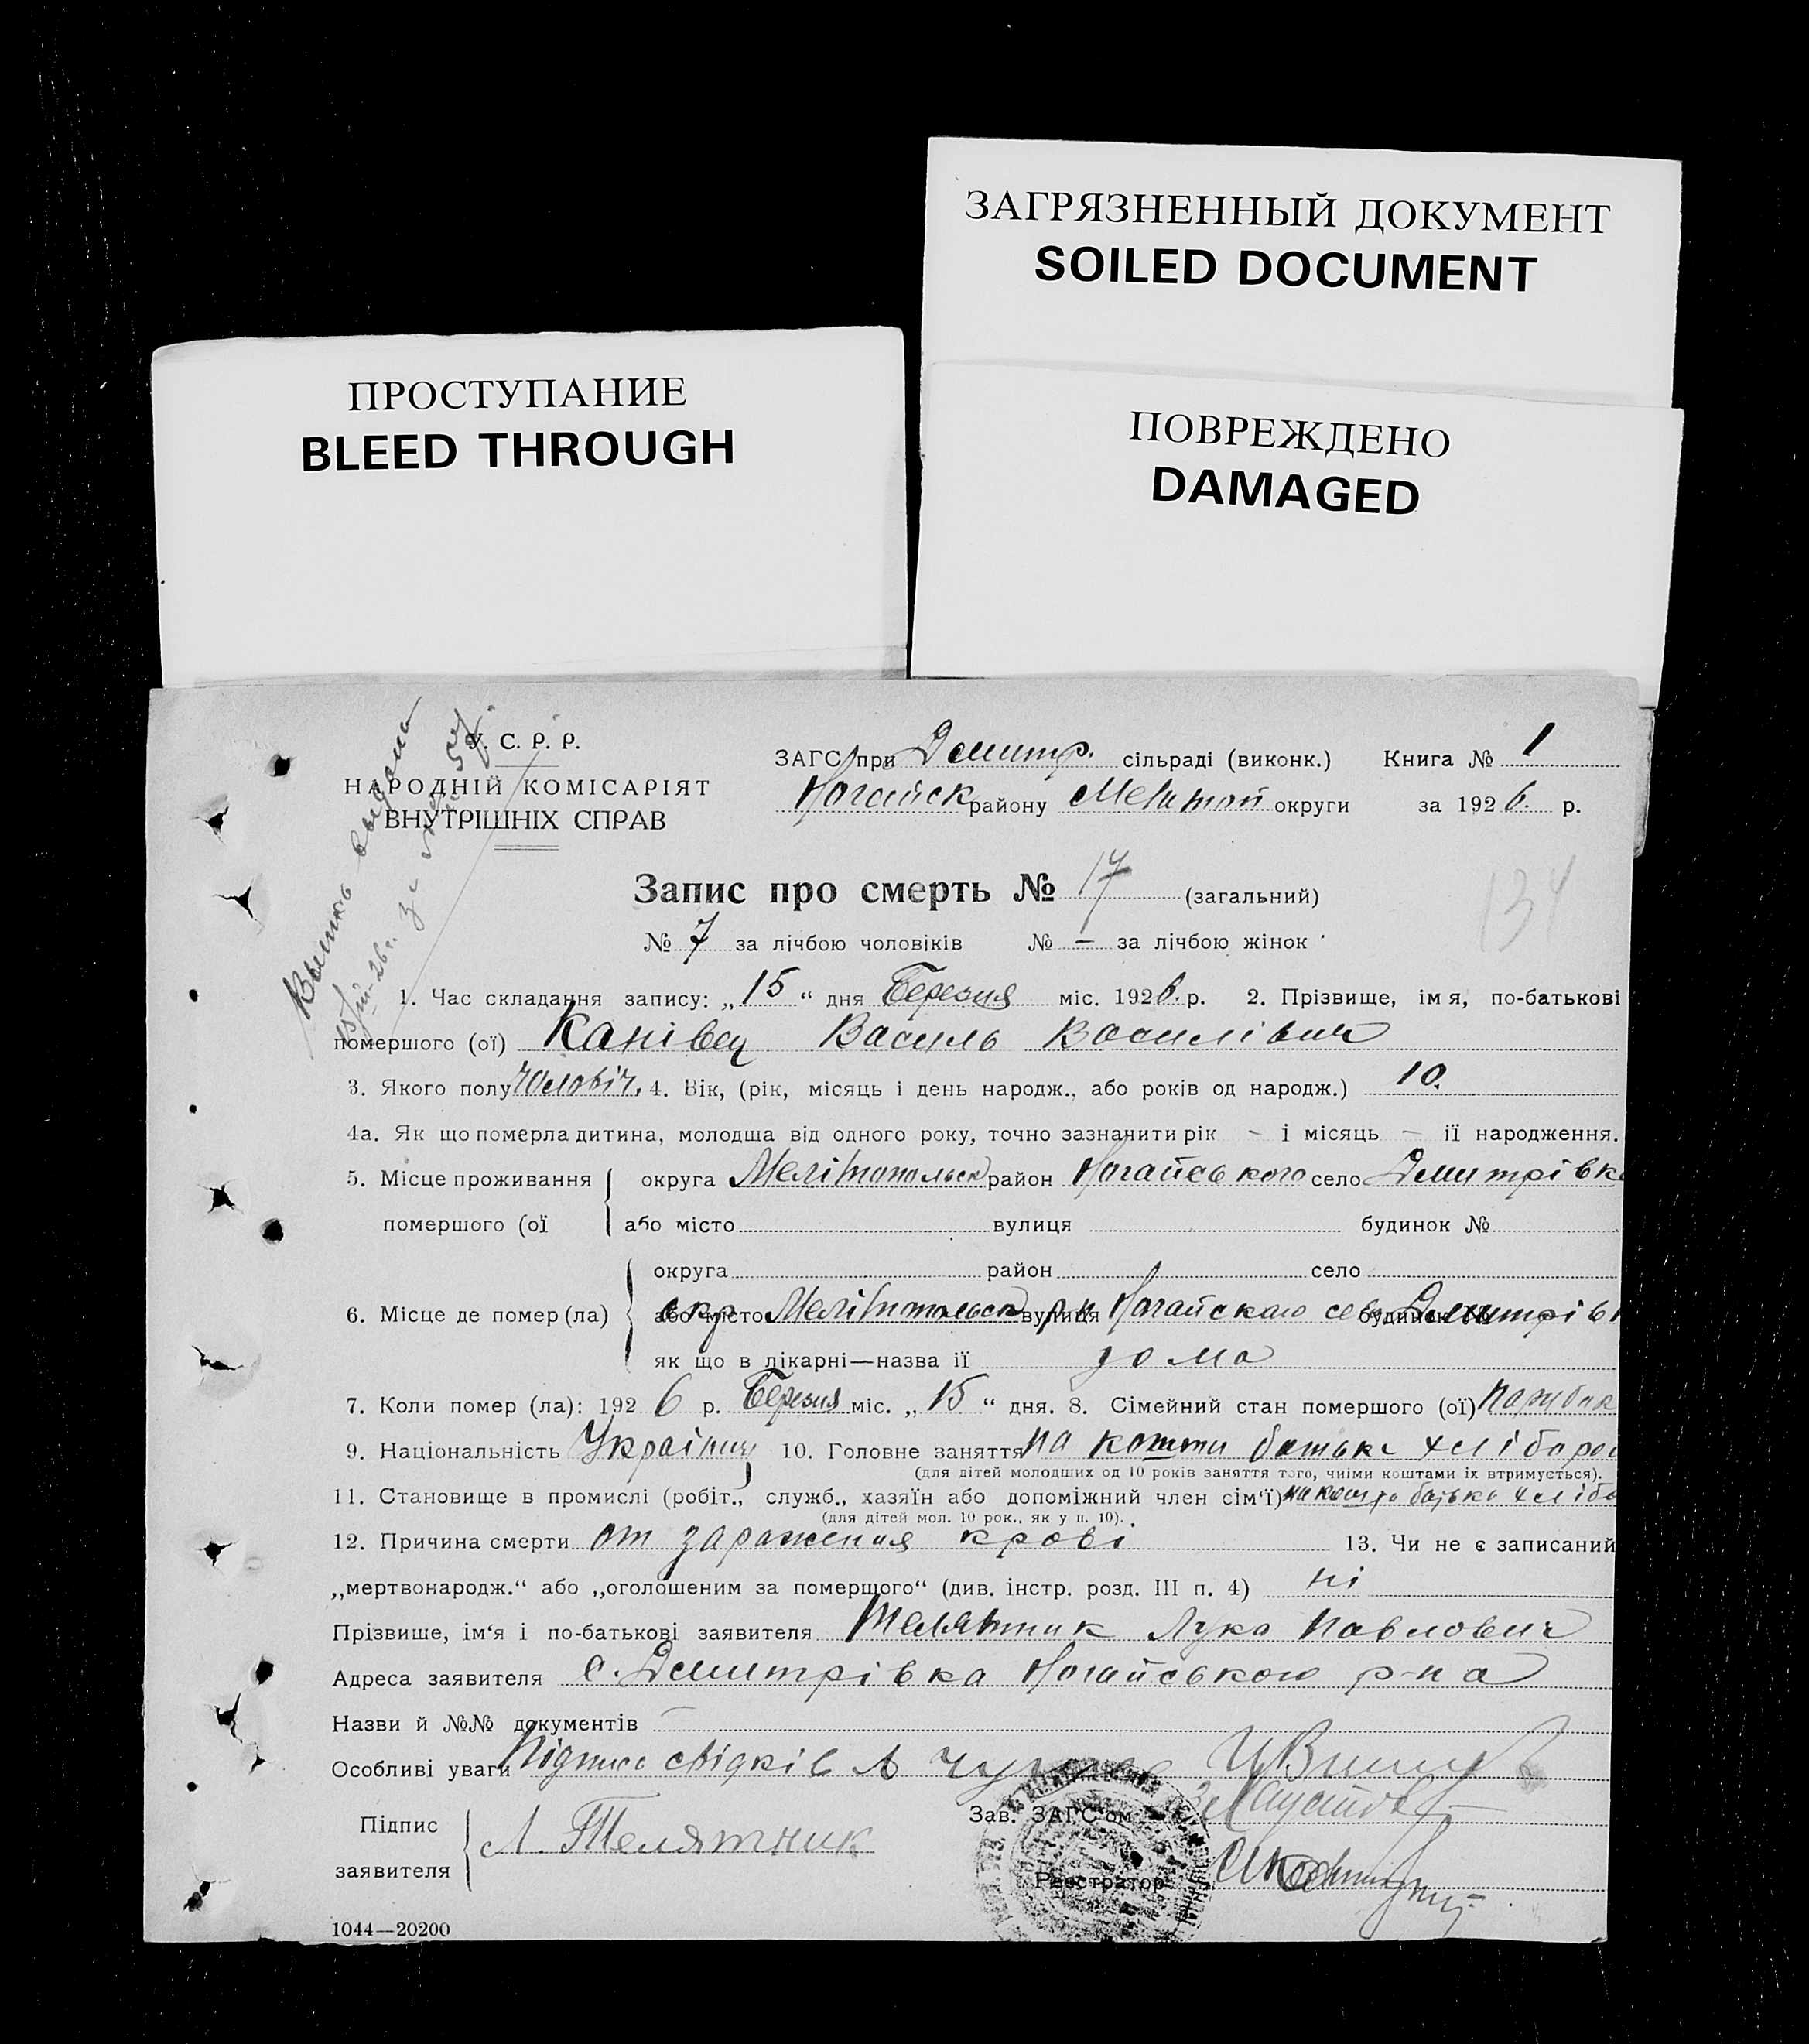 ЗАГРЯЗНЕННЫЙ ДОКУМЕНТ
SOILED DOCUMENT
ПРОСТУПАНИЕ
BLEED THROUGH
ПОВРЕЖДЕНО
DAMAGED
У. С. Р. Р.
НАРОДНІЙ КОМІСАРІЯТ
ВНУТРІШНІХ СПРАВ
ЗАГС при Дмитр. сільраді (виконк.) Книга № 1
Ногайск району округи за 1926. р.
Запис про смерть № 17 (загальний)
134
№ 7 за лічбою чоловіків № — за лічбою жінок
1. Час складання запису: „15“ дня Березня міс. 1926. р. 2. Прізвище, імя, по-батькові
помершого (ої) Канівец Василь Василівич
3. Якого полу чоловіч. 4. Вік, (рік, місяць і день народж., або років од народж.) 10.
4а. Як що померла дитина, молодша від одного року, точно зазначити рік – і місяць – її народження.
5. Місце проживання округа Мелітопольск район Ногайського село Дмитрівка
помершого (ої або місто вулиця будинок №
округа район село
6. Місце де помер (ла) або місто окр Мелітопольск вулиця р-н Ногайского будинок село Дмитрівк
як що в лікарні—назва її дома
7. Коли помер (ла): 1926 р. Березня міс. „15“ дня. 8. Сімейний стан помершого (ої) парубок
9. Національність Українец 10. Головне заняття на кошти батька хлібороб
(для дітей молодших од 10 років заняття того, чиїми коштами їх втримується).
11. Становище в промислі (робіт., служб., хазяїн або допоміжний член сім‘ї) на кошти батька хлібо
(для дітей мол. 10 рок., як у п. 10).
12. Причина смерти от заражения крові 13. Чи не є записаний
„мертвонародж.“ або „оголошеним за померщого“ (див. інстр. розд. III п. 4) ні
Прізвише, ім‘я і по-батькові заявителя Телятник Лука Павлович
Адреса заявителя с. Дмитрівка Ногайського р-на
Назви й №№ документів —
Особливі уваги Підписи свідків
Підпис
заявителя Л. Телятник
Зав. ЗАГС‘ом
Реєстратор
1044—20200